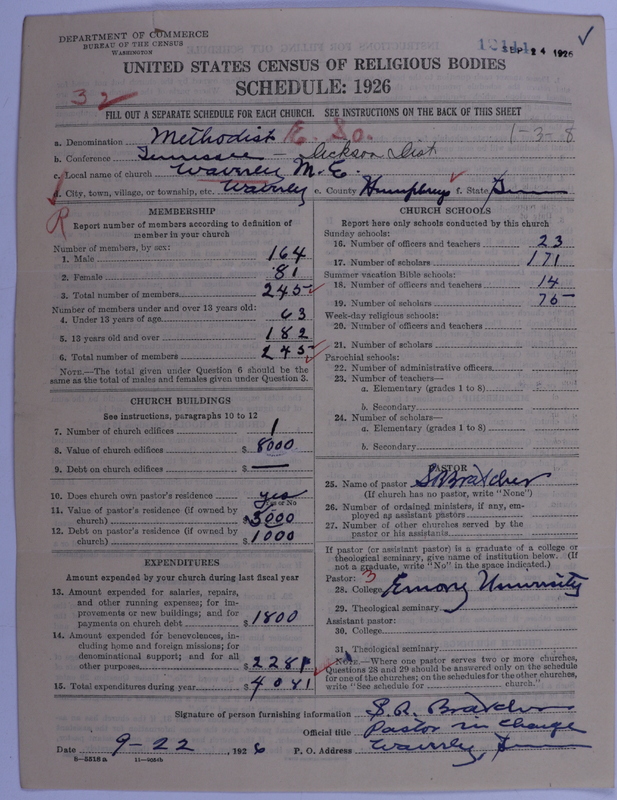 DEPARTMENT OF COMMERCE
BUREAU OF THE CENSUS
WASHINGTON
SEP 24 1926
UNITED STATES CENSUS OF RELIGIOUS BODIES
SCHEDULE: 1926
32
FILL OUT A SEPARATE SCHEDULE FOR EACH CHURCH. SEE INSTRUCTIONS ON THE BACK OF THIS SHEET
a. Denomination Methodist E. So. 1-3-8
b. Conference Tennessee - Dickson Dist
c. Local name of church Waverley M.E.
d. City, town, village, or township, etc. Waverley e. County Humphreys f. State Tenn
R
MEMBERSHIP
Report number of members according to definition of
member in your church
Number of members, by sex:
1. Male 164
2. Female 81
3. Total number of members 245
Number of members under and over 13 years old:
4. Under 13 years of age 63
5. 13 years old and over 182
6. Total number of members 245
NOTE.—The total given under Question 6 should be the
same as the total of males and females given under Question 3.
CHURCH BUILDINGS
See instructions, paragraphs 10 to 12
7. Number of church edifices 1
8. Value of church edifices $ 8000
9. Debt on church edifices $ —
10. Does church own pastor's residence yes
Yes or No
11. Value of pastor's residence (if owned by
church) $ 3000
12. Debt on pastor's residence (if owned by
church) $ 1000
EXPENDITURES
Amount expended by your church during last fiscal year
13. Amount expended for salaries, repairs,
and other running expenses; for im-
provements or new buildings; and for
payments on church debt $ 1800
14. Amount expended for benevolences, in-
cluding home and foreign missions; for
denominational support; and for all
other purposes $ 2281
15. Total expenditures during year $ 4081
CHURCH SCHOOLS
Report here only schools conducted by this church
Sunday schools:
16. Number of officers and teachers 23
17. Number of scholars 171
Summer vacation Bible schools:
18. Number of officers and teachers 14
19. Number of scholars 75
Week-day religious schools:
20. Number of officers and teachers
21. Number of scholars
Parochial schools:
22. Number of administrative officers
23. Number of teachers—
a. Elementary (grades 1 to 8)
b. Secondary
24. Number of scholars—
a. Elementary (grades 1 to 8)
b. Secondary
PASTOR
25. Name of pastor S R Bratcher
(If church has no pastor, write "None")
26. Number of ordained ministers, if any, em-
ployed as assistant pastors
27. Number of other churches served by the
pastor or his assistants
If pastor (or assistant pastor) is a graduate of a college or
theological seminary, give name of institution below. (If
not a graduate, write "No" in the space indicated.)
Pastor: 3
28. College Emory University
29. Theological seminary
Assistant pastor:
30. College
31. Theological seminary
NOTE.—Where one pastor serves two or more churches,
Questions 28 and 29 should be answered only on the schedule
for one of the churches; on the schedules for the other churches,
write "See schedule for church."
Signature of person furnishing information S. R. Bratcher
Official title Pastor in Charge
Date 9-22, 1926 P. O. Address Waverley, Tenn
8—5516a 11—5054b